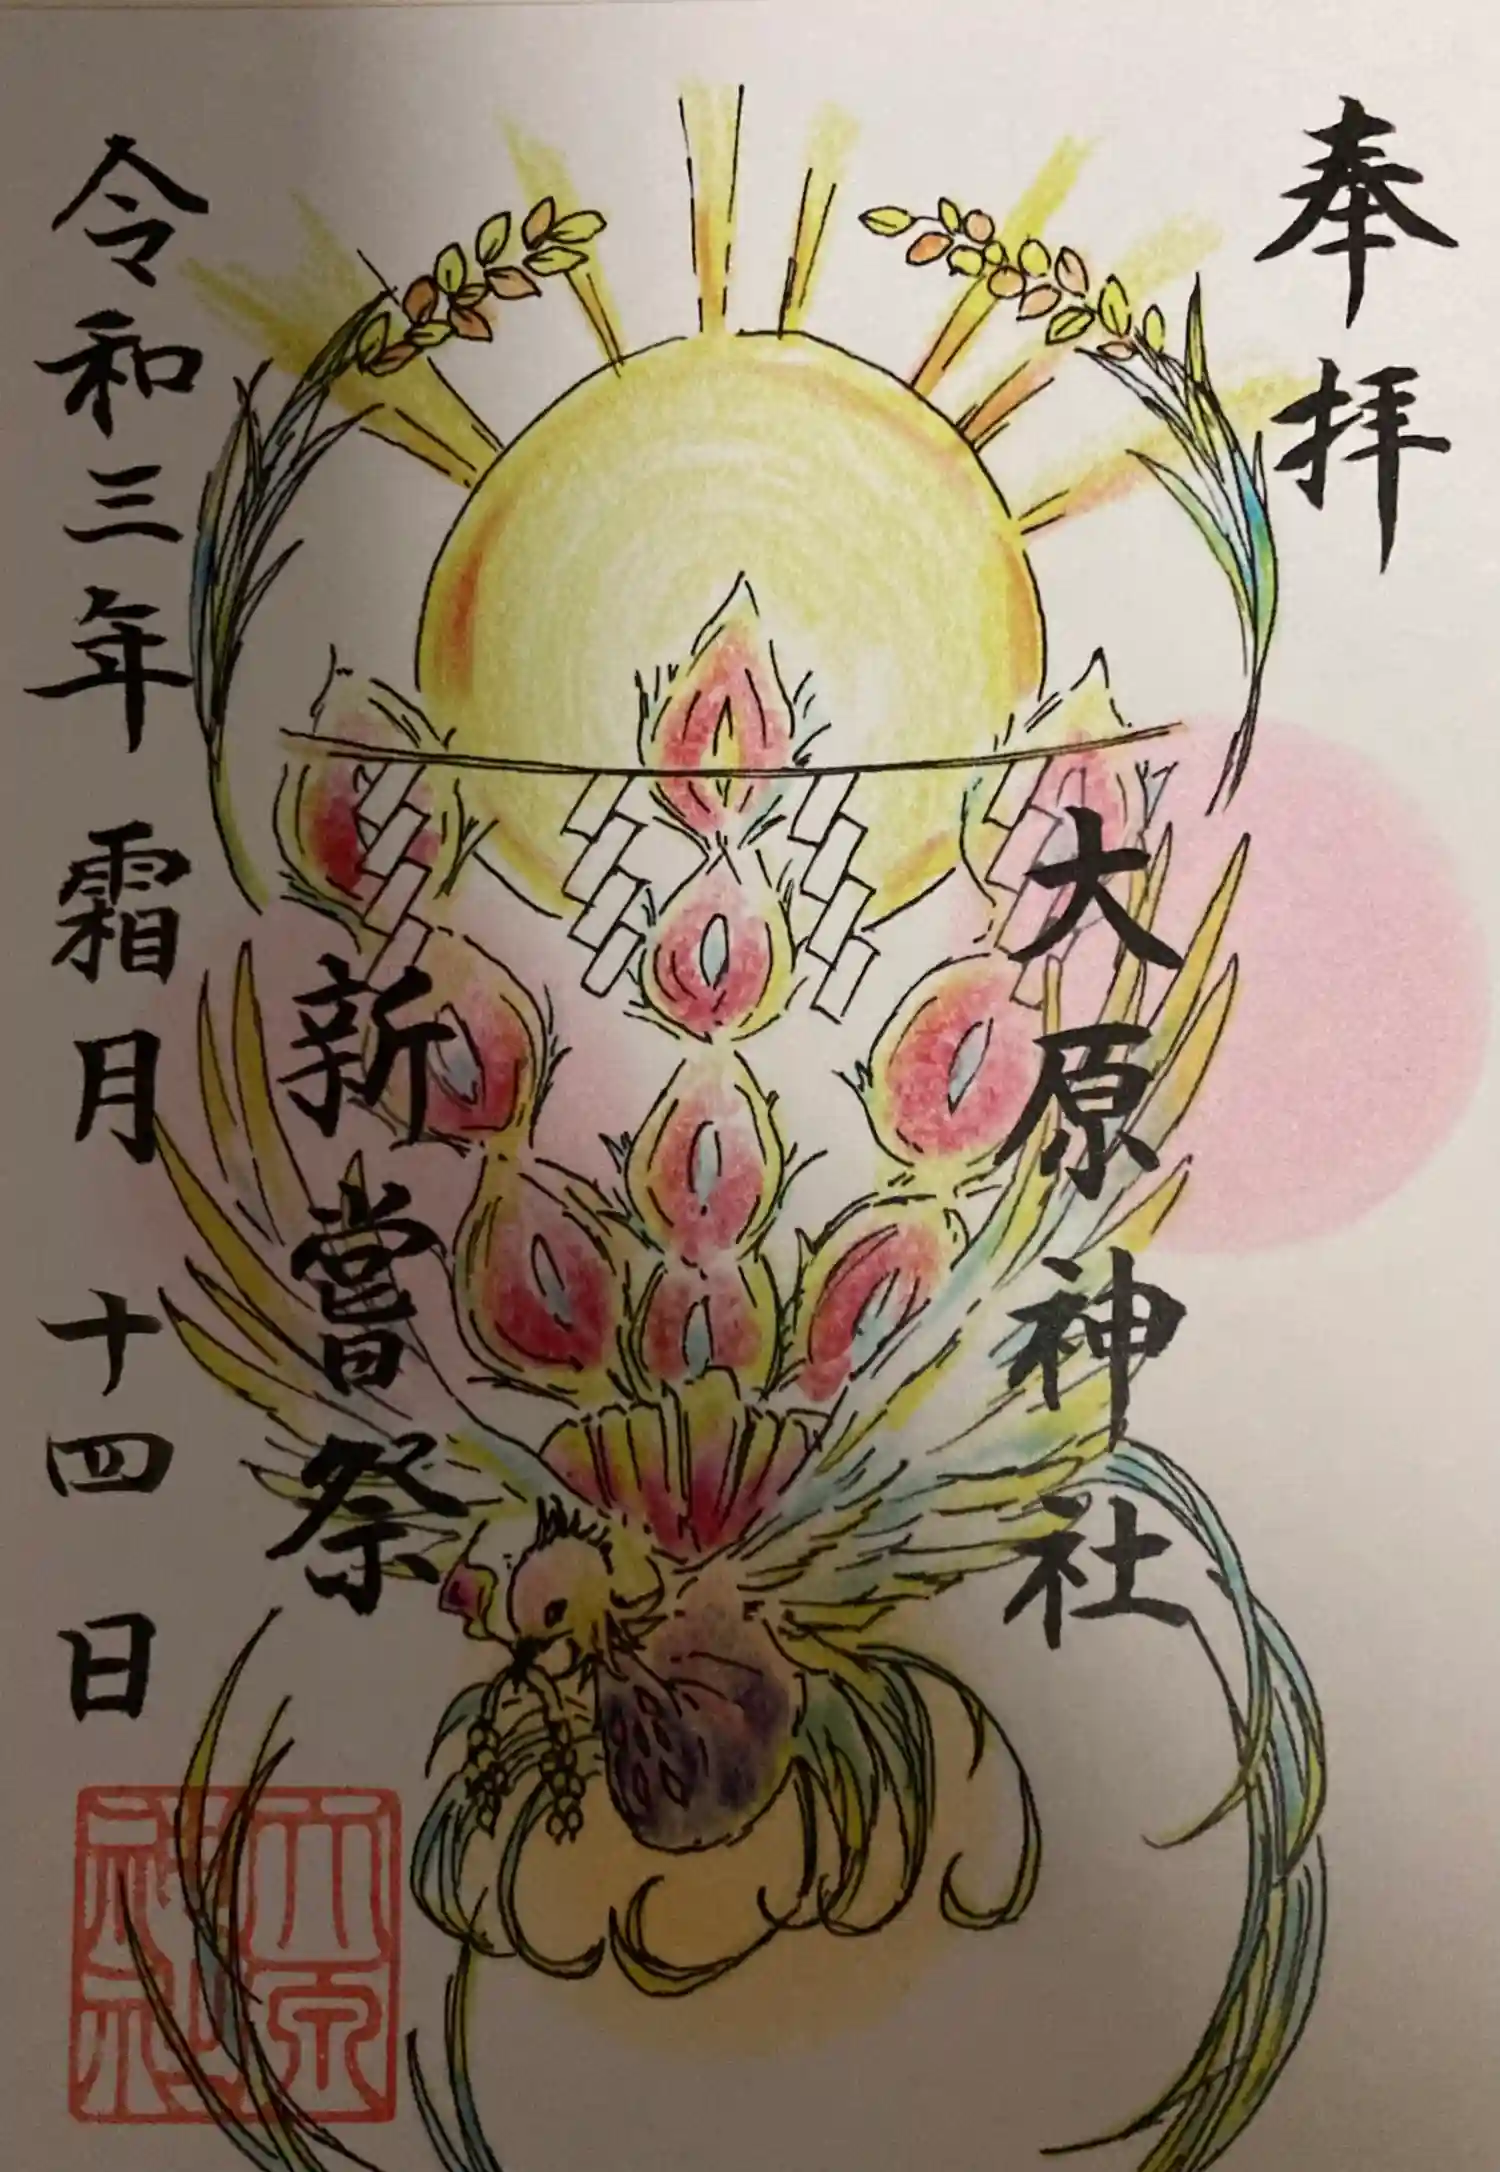 奉拝
大原神社
新嘗祭
令和三年霜月十四日
大原
神社